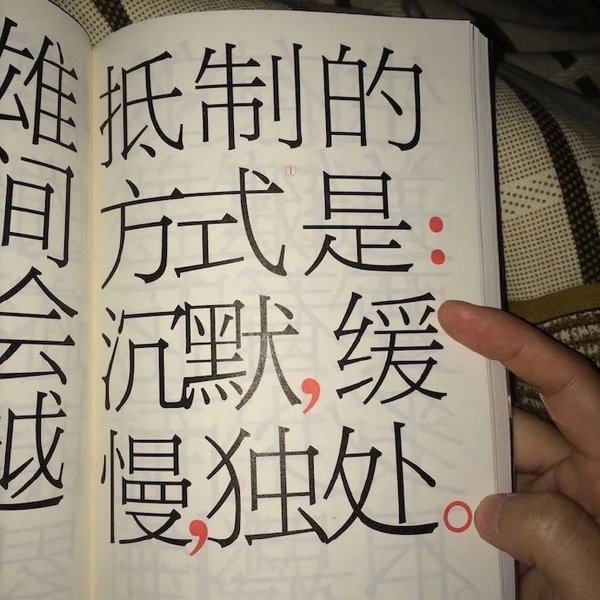 雄
间
会
越
抵制的
方式①是：
沉默，缓
慢，独处。